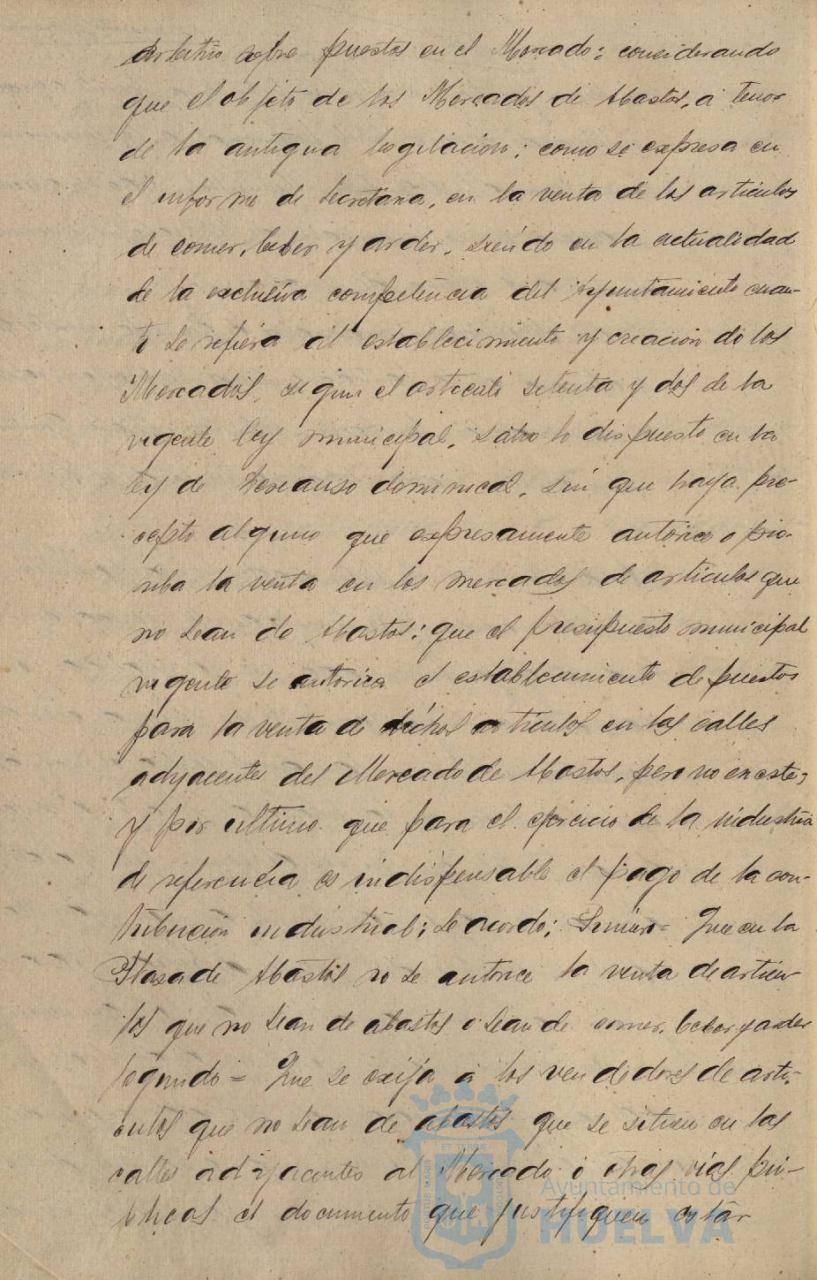 arbitrio sobre puestos en el Mercado: considerando
que el objeto de los Mercados de Abastos, á tenor
de la antigua legislacion; como se expresa en
el informe de Secretaria, en la venta de los articulos
de comer, beber y arder, siendo en la actualidad
de la exclusiva competencia del Ayuntamiento cuan-
to se refiera al establecimiento y creacion de los
Mercados, segun el articulo setenta y dos de la
vigente ley municipal, salvo lo dispuesto en la
ley de Descanso dominical, sin que haya pre-
cepto alguno que expresamente autorice o pro-
hiba la venta en los mercados de articulos que
no sean de Abastos: que el presupuesto municipal
vigente se autorica el establecimiento de puestos
para la venta de dichos articulos en las calles
adyacentes del Mercado de Abastos, pero no en este;
y por ultimo que para el ejercicio de la industria
de referencia es indispensable el pago de la con-
tribucion industrial; se acordo; = Que en la
Plaza de Abastos no se autorice la venta de articu-
los que no sean de abastos o sean de comer, beber y arder
Segundo = Que se exija á los vendedores de arti-
culos que no sean de abastos que se situen en las
calles adyacentes al Mercado ú otras vias pú-
blicas el documento que justifiquen estar
Ayuntamiento de
HUELVA